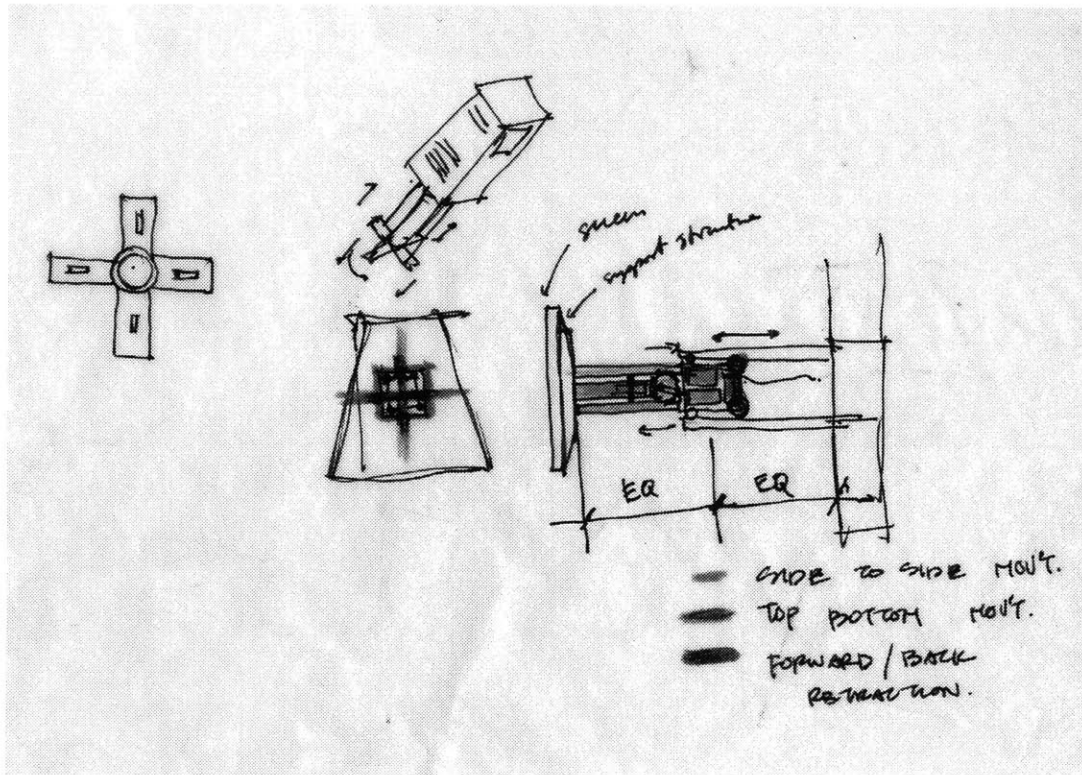 screen
support structure
EQ EQ
SIDE TO SIDE MOV'T.
TOP BOTTOM MOV'T.
FORWARD / BACK
RETRACTION.